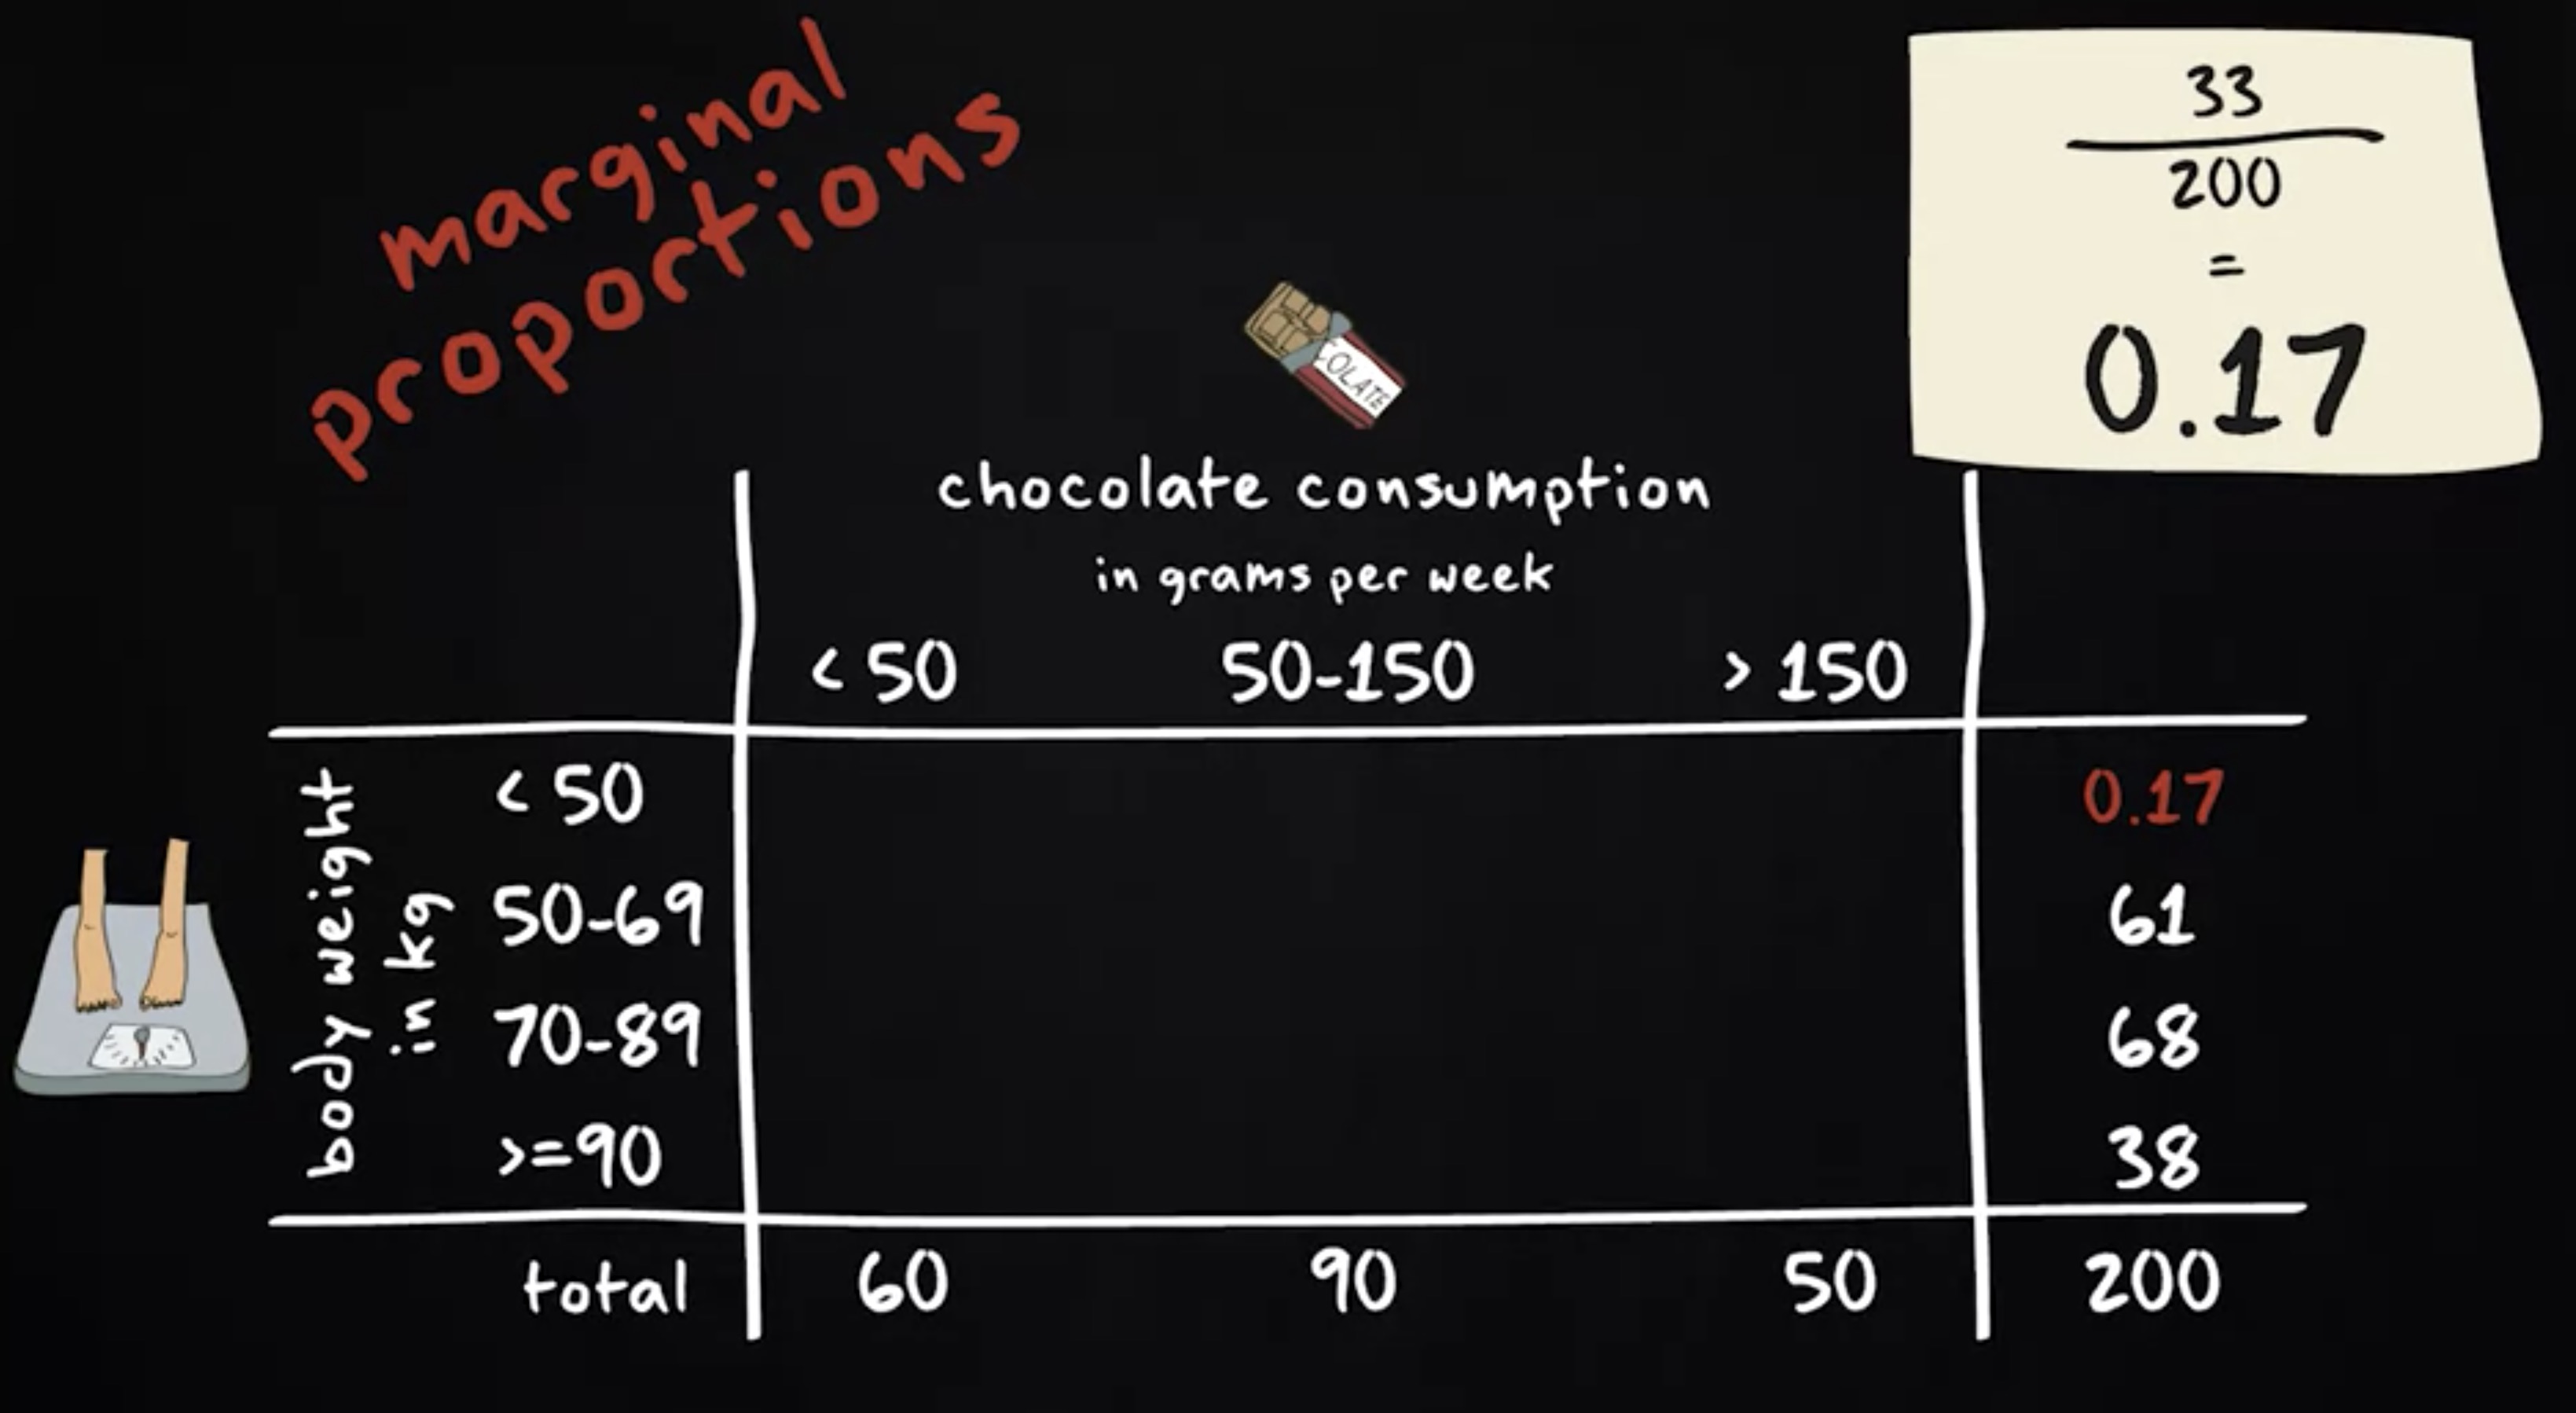 marginal
proportions
33
200
=
0.17
COLATE
chocolate consumption
in grams per week
< 50 50-150 > 150
body weight
in kg
< 50 0.17
50-69 61
70-89 68
>=90 38
total 60 90 50 200